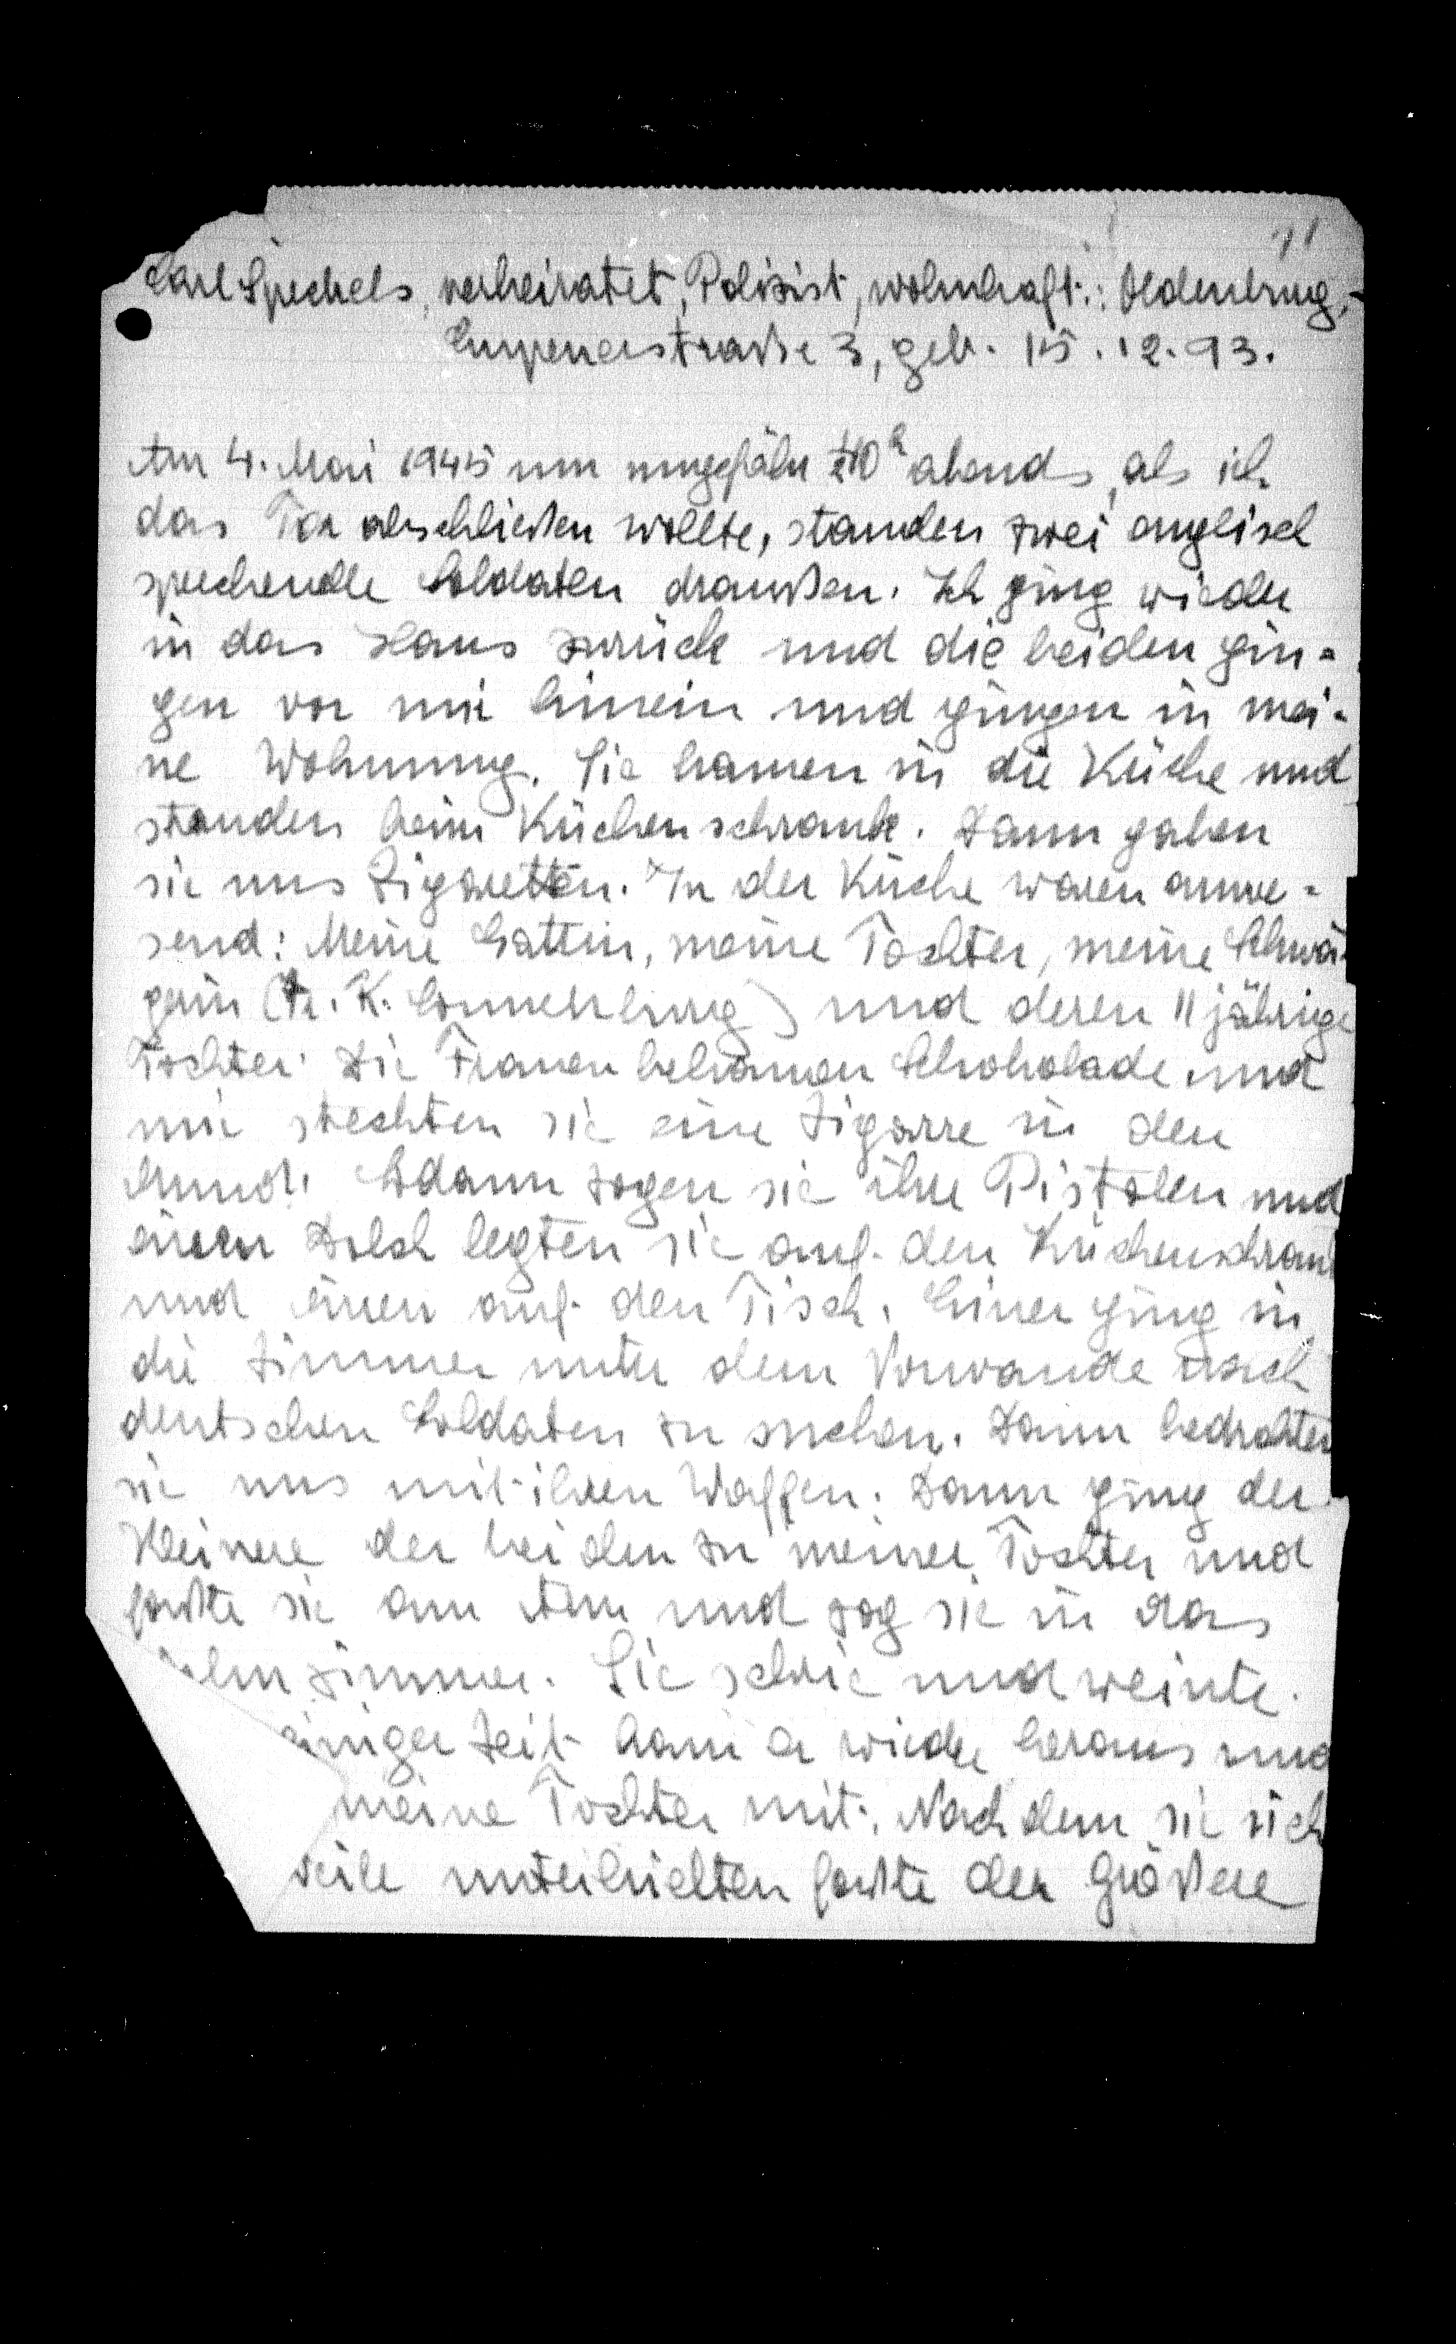 Carl Speckels, verheiratet, Polizist, wohnhaft: Oldenburg,
Eupenerstraße 3, geb. 15.12.93.
Am 4. Mai 1945 um ungefähr 10h abends, als ich
das Tor abschließen wollte, standen zwei englisch
sprechende Soldaten draußen. Ich ging wieder
in das Haus zurück und die beiden gin-
gen vor mir hinein und gingen in mei-
ne Wohnung. Sie kamen in die Küche und
standen beim Küchenschrank. Dann gaben
sie uns Zigaretten. In der Küche waren anwe-
send: Meine Gattin, meine Tochter, meine Schwä-
gerin (Fr. K. Sonnenburg) und deren 11 jährige
Tochter. Die Frauen bekamen Schokolade und
mir steckten sie eine Zigarre in den
Mund. Sodann zogen sie ihre Pistolen und
einen Dolch legten sie auf den Küchenschrank
und einen auf den Tisch. Einer ging in
die Zimmer unter dem Vorwande nach
deutschen Soldaten zu suchen. Dann bedrohten
sie uns mit ihren Waffen. Dann ging der
Kleinere der beiden zu meiner Tochter und
faßte sie am Arm und zog sie in das
zimmer. Sie schrie und weinte.
einiger Zeit kam er wieder heraus und
meine Tochter mit. Nachdem sie sich
weile unterhielten faßte der Größere